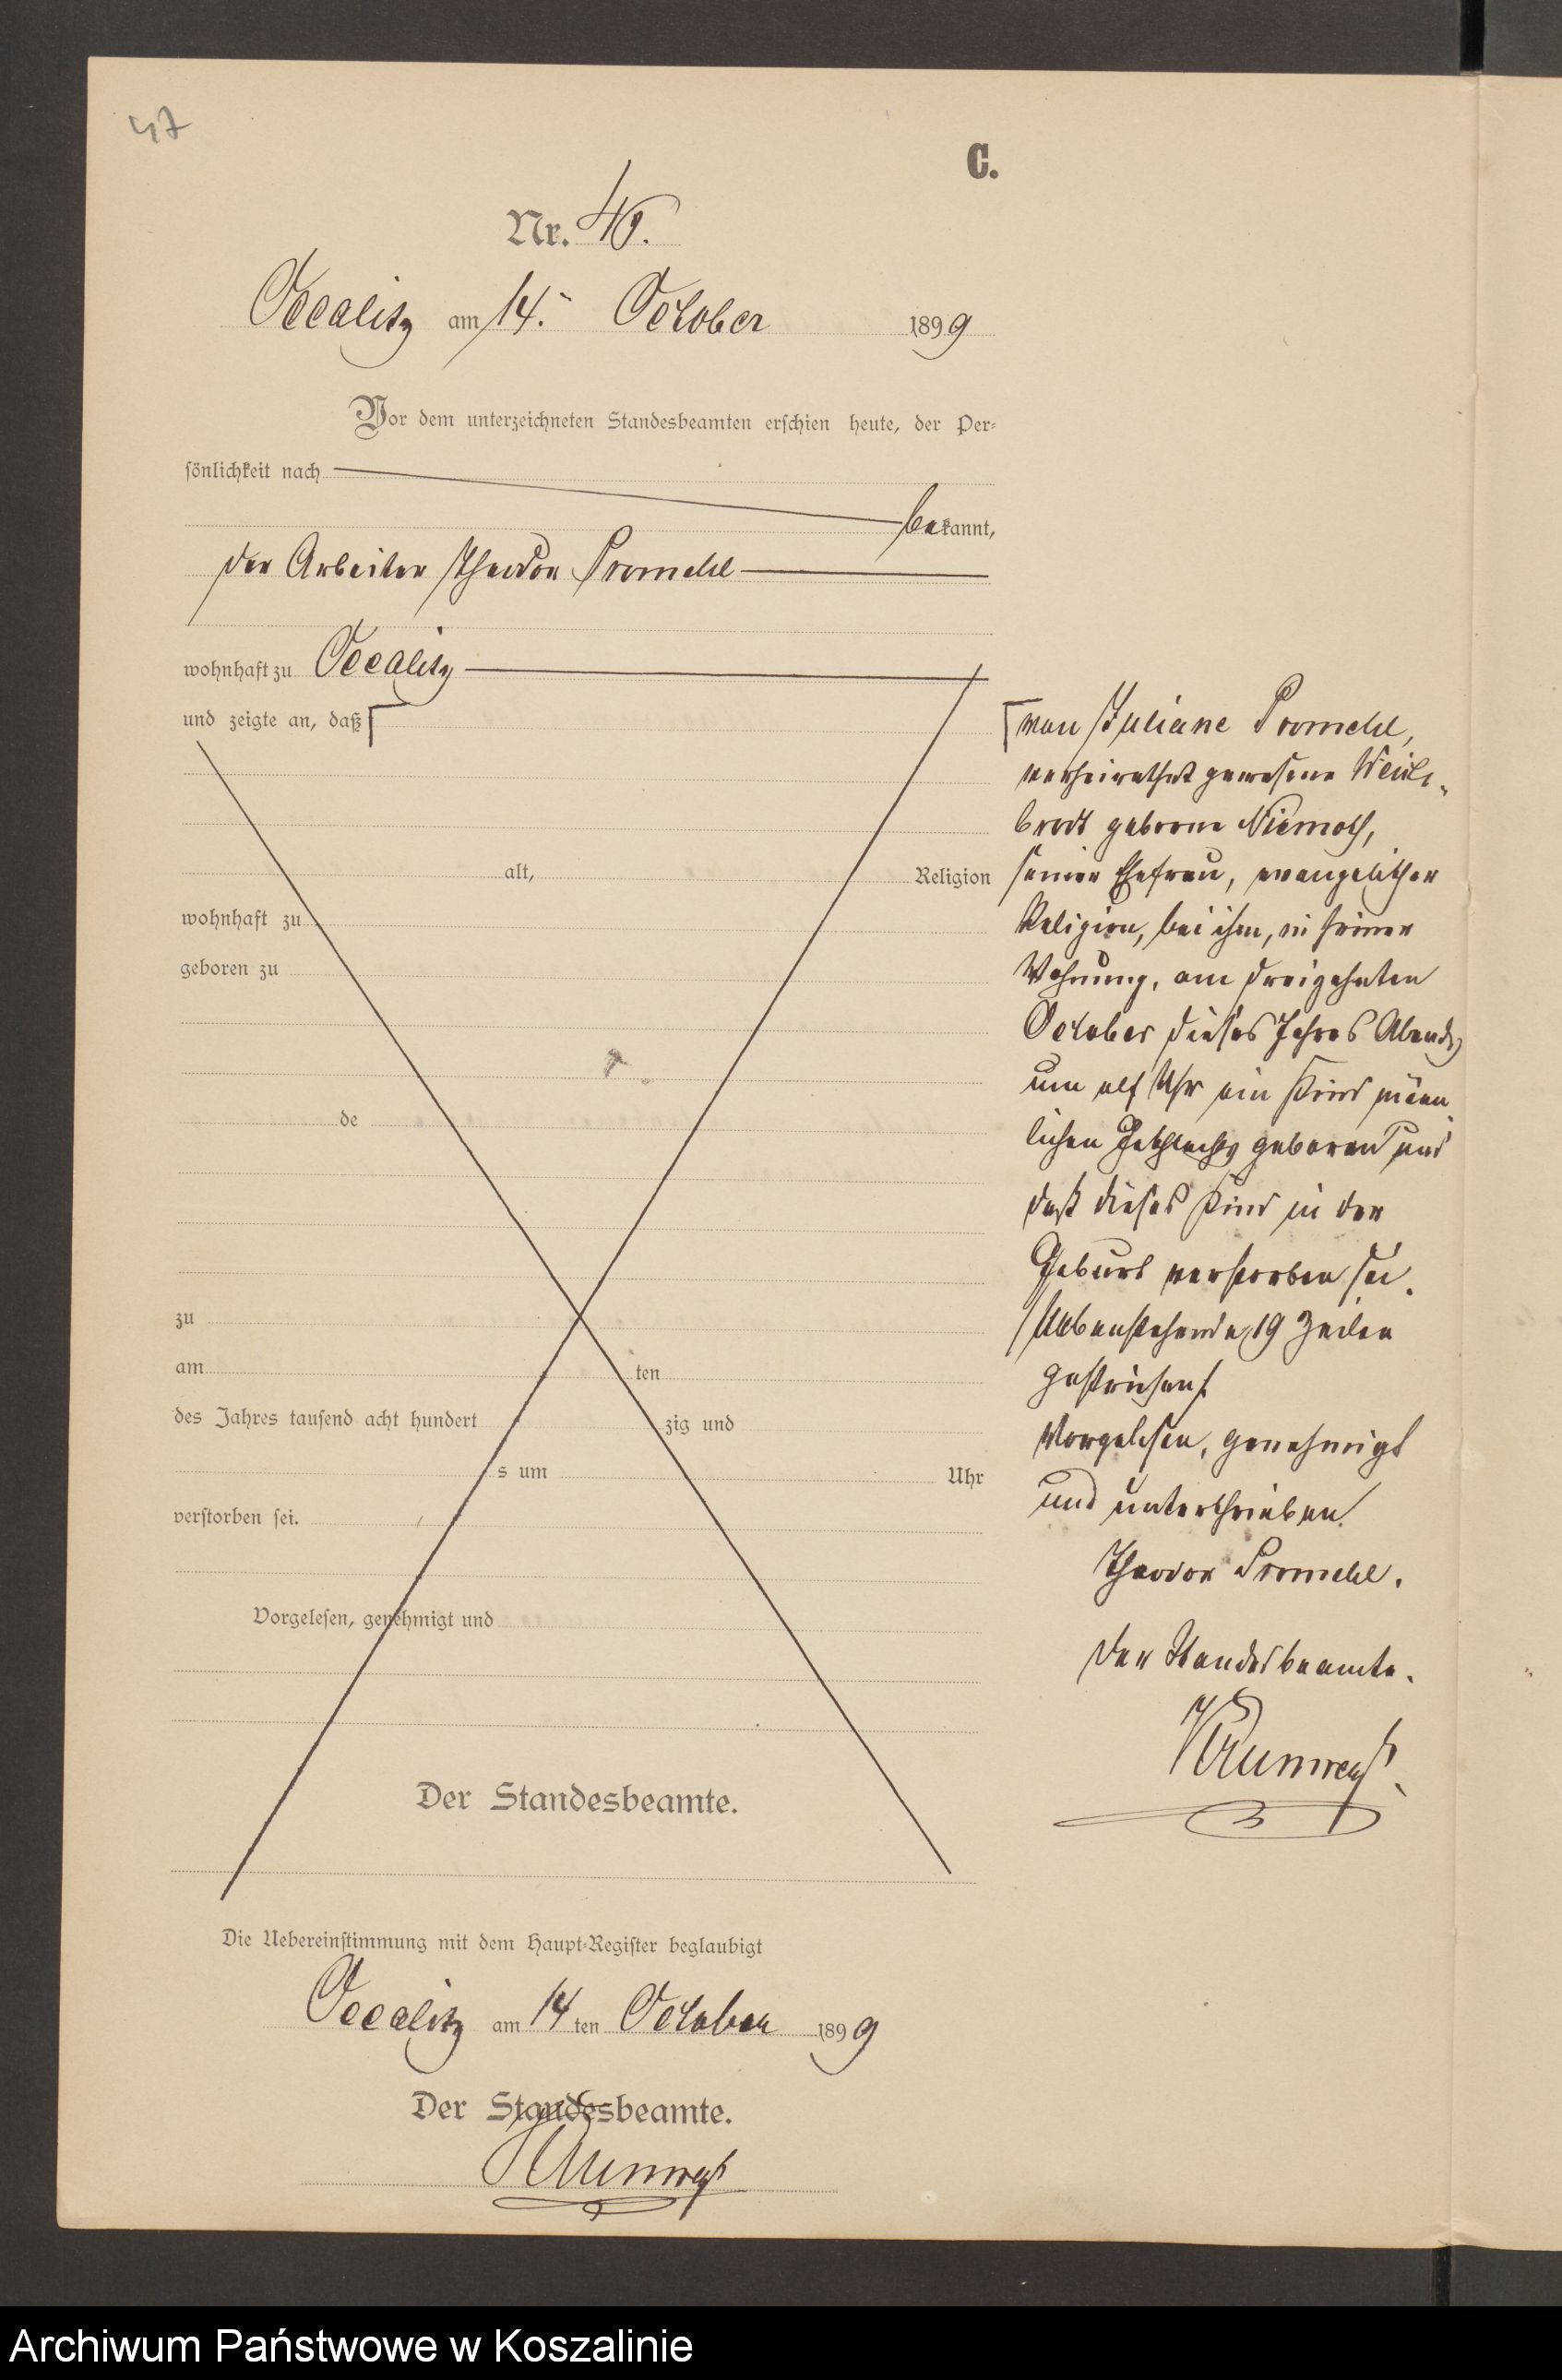 47
C.
Nr. 46.
Occalitz am 14. October 1899
Vor dem unterzeichneten Standesbeamten erschien heute, der Per-
sönlichkeit nach
bekannt,
der Arbeiter Theodor Promehl
wohnhaft zu Occalitz
und zeigte an, daß
alt, Religion
wohnhaft zu
geboren zu
de
zu
am ten
des Jahres tausend acht hundert zig und
s um Uhr
verstorben sei.
Vorgelesen, genehmigt und
Der Standesbeamte.
von Juliane Promehl,
verheirathet gewesene
brodt geborne
seiner Ehefrau, evangelischer
Religion, bei ihm, in seiner
Wohnung, am dreizehnten
October dieses Jahres Abends
um elf Uhr ein Kind männ
lichen Geschlechts geboren und
daß dieses Kind in der
Geburt verstorben sei.
Nebenstehende 19 Zeilen
gestrichen
Vorgelesen, genehmigt
und unterschrieben
Theodor Promehl.
Der Standesbeamte.
Die Uebereinstimmung mit dem Haupt-Register beglaubigt
Occalitz am 14 ten October 1899
Der Standesbeamte.
Archiwum Państwowe w Koszalinie